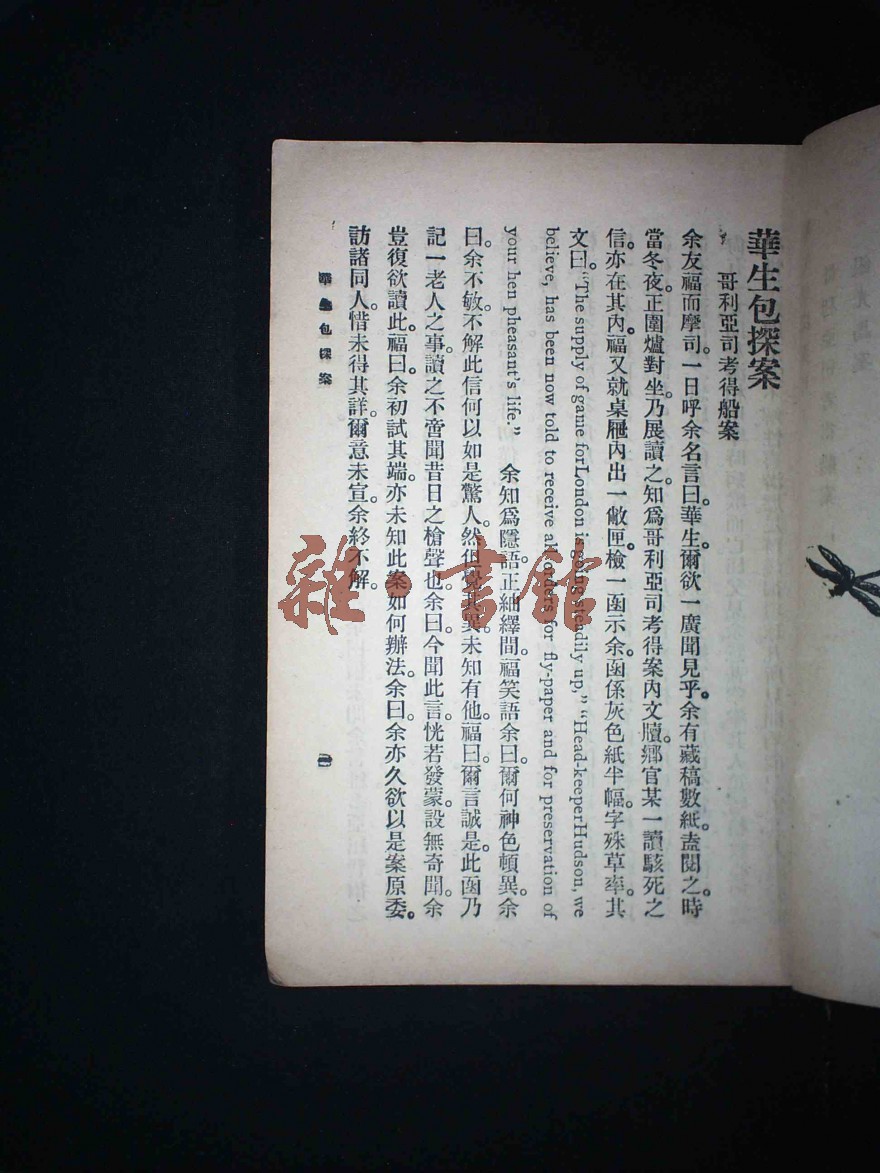 華生包探案
哥利亞司考得船案
余友福而摩司。一日呼余名言曰。華生。爾欲一廣聞見乎。余有藏稿數紙。盍閱之。時
當冬夜。正圍爐對坐。乃展讀之。知爲哥利亞司考得案內文牘。鄉官某一讀駭死之
信。亦在其內。福又就桌屜內出一敝匣。檢一函示余。函係灰色紙半幅。字殊草率。其
文曰。"The supply of game forLondon is going steadily up," "Head-keeperHudson, we
believe, has been now told to receive all orders for fly-paper and for preservation of
your hen pheasant's life." 余知爲隱語。正紬繹間。福笑語余曰。爾何神色頓異。余
曰。余不敏。不解此信何以如是驚人。然但覺其異。未知有他。福曰。爾言誠是。此函乃
記一老人之事。讀之不啻聞昔日之槍聲也。余曰。今聞此言。恍若發蒙。設無奇聞。余
豈復欲讀此。福曰。余初試其端。亦未知此案如何辦法。余曰。余亦久欲以是案原委。
訪諸同人。惜未得其詳。爾意未宣。余終不解。
華生包探案
一
雜·書館